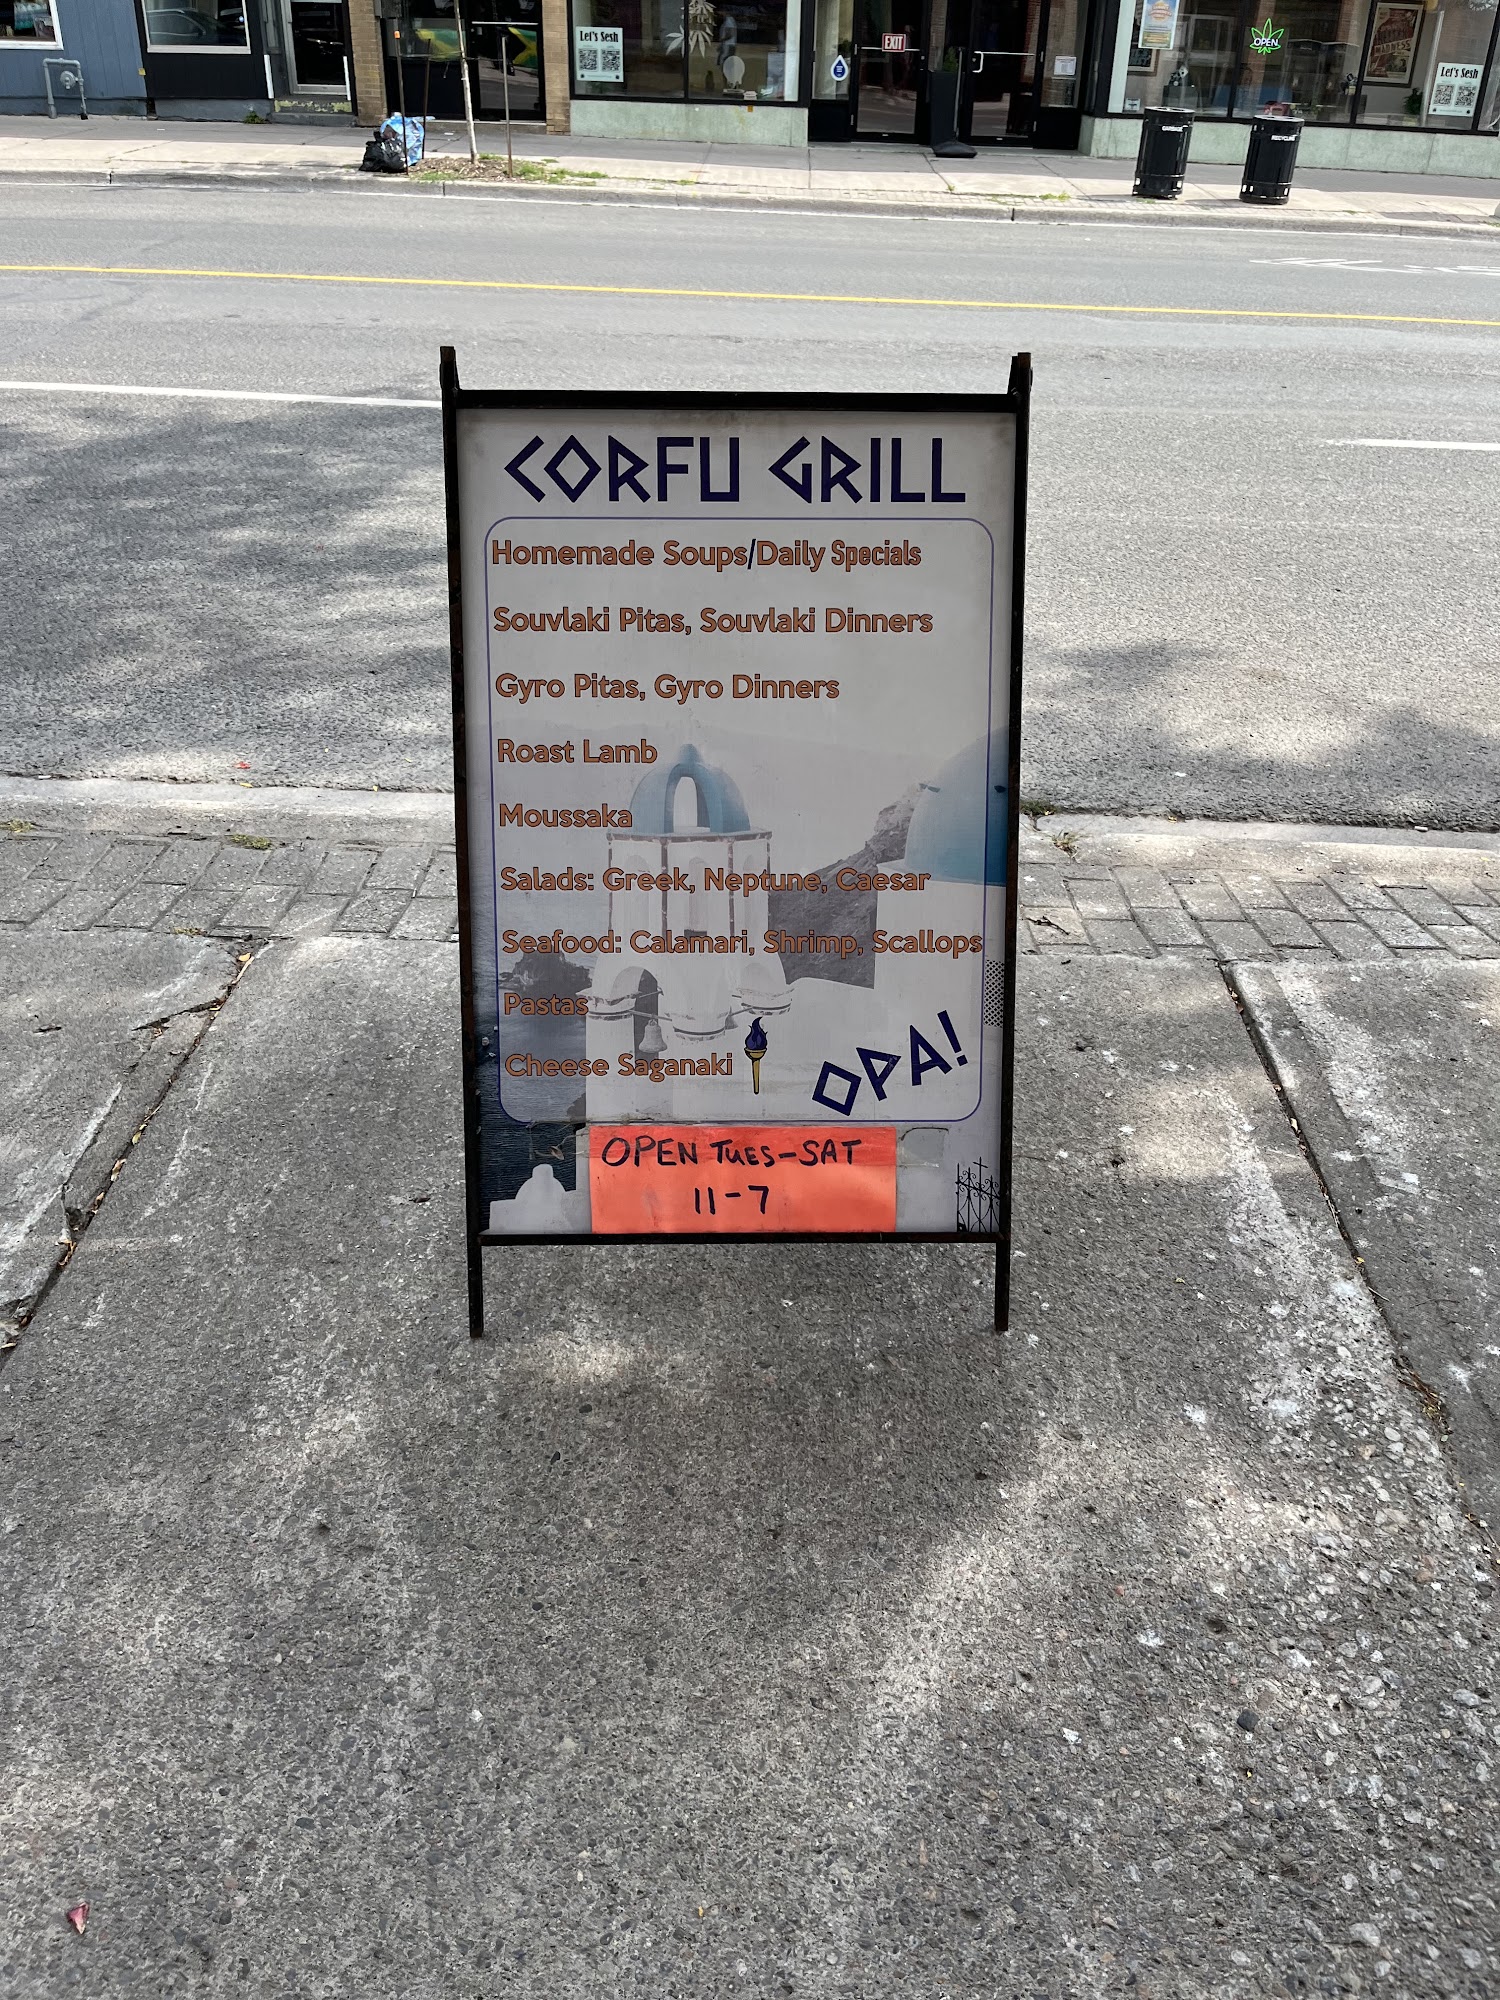 Let's Sesh
EXIT
OPEN
Let's Sesh
GARBAGE
RECYCLING
CORFU GRILL
Homemade Soups/Daily Specials
Souvlaki Pitas, Souvlaki Dinners
Gyro Pitas, Gyro Dinners
Roast Lamb
Moussaka
Salads: Greek, Neptune, Caesar
Seafood: Calamari, Shrimp, Scallops
Pastas
Cheese Saganaki
OPA!
OPEN TUES-SAT
11-7